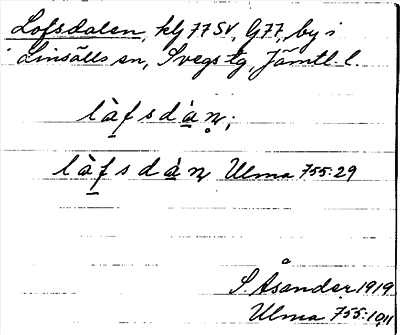 Lofsdalen, kbl 77 SV, G77, by i
Linsälls sn, Svegs tg, Jämtl. l.
là̱fsdá̱n̥;
là̱fsdá̱n Ulma 755:29
S. Åsander 1919
Ulma 755:10,11